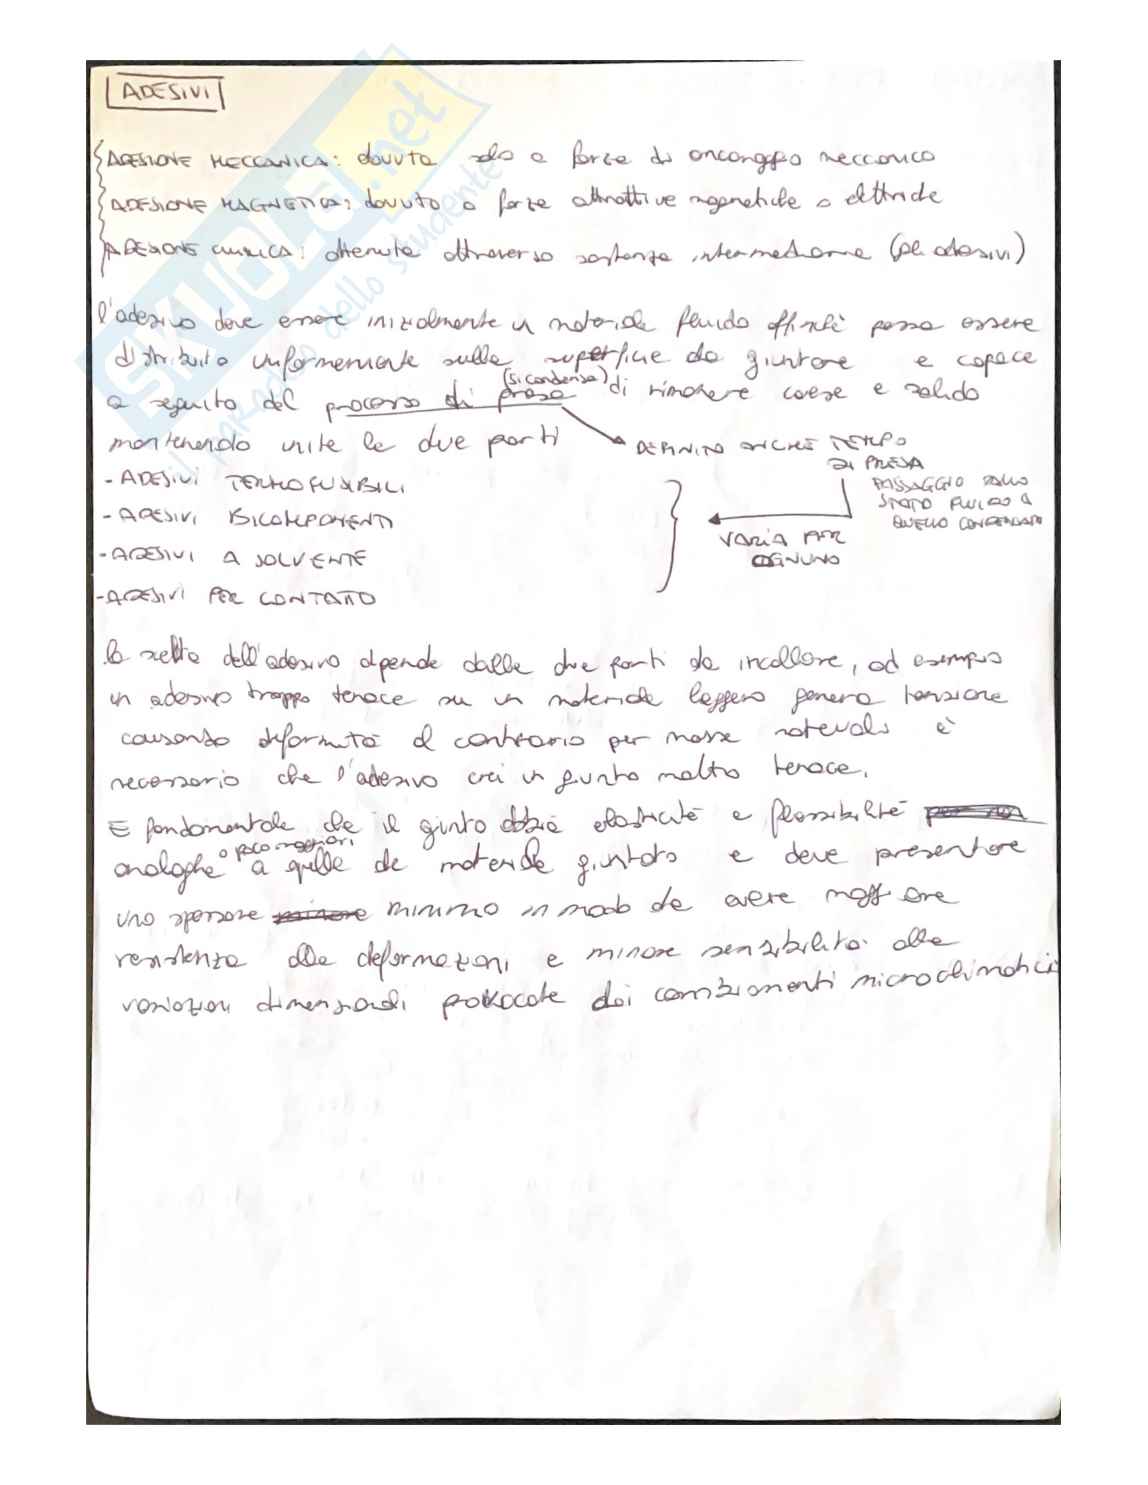 ADESIVI
ADESIONE MECCANICA: dovuta solo a forze di ancoraggio meccanico
ADESIONE MAGNETICA: dovuta a forze attrattive magnetiche o elettriche
ADESIONE CHIMICA: ottenuta attraverso sostanze intermediarie (gli adesivi)
l'adesivo deve essere inizialmente un materiale fluido affinché possa essere
distribuito uniformemente sulla superficie da giuntare e capace
(si condensa)
a seguito del processo di presa di rimanere coese e solido
mantenendo unite le due parti
DEFINITO ANCHE TEMPO
DI PRESA
PASSAGGIO DALLO
STATO FLUIDO A
QUELLO CONDENSATO
VARIA PER
OGNUNO
- ADESIVI TERMOFUSIBILI
- ADESIVI BICOMPONENTI
- ADESIVI A SOLVENTE
- ADESIVI PER CONTATTO
la scelta dell'adesivo dipende dalle due parti da incollare, ad esempio
un adesivo troppo tenace su un materiale leggero genera tensione
causando deformità al contrario per masse notevoli è
necessario che l'adesivo crei un giunto molto tenace.
È fondamentale che il giunto abbia elasticità e flessibilità
o poco maggiori
analoghe a quelle del materiale giuntato e deve presentare
uno spessore minore minimo in modo da avere maggiore
resistenza alle deformazioni e minore sensibilità alle
variazioni dimensionali provocate dai cambiamenti microclimatici
SKUOLA.net
il paradiso dello studente